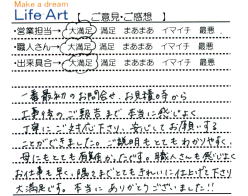 Make a dream
Life Art 【ご意見・ご感想】
・営業担当→ 大満足 満足 まあまあ イマイチ 最悪
・職人さん→ 大満足 満足 まあまあ イマイチ 最悪
・出来具合→ 大満足 満足 まあまあ イマイチ 最悪
一番最初のお問合せ、お見積の時から
工事後のご報告まで本当に感じよく
丁寧にご対応下さり、安心してお願いする
ことができました。ご説明もとてもわかりやすく
母にもとても
職人さんも感じよく
お仕事も早く隅々までとてもきれいに仕上げて下さり
大満足です。本当にありがとうございました!!